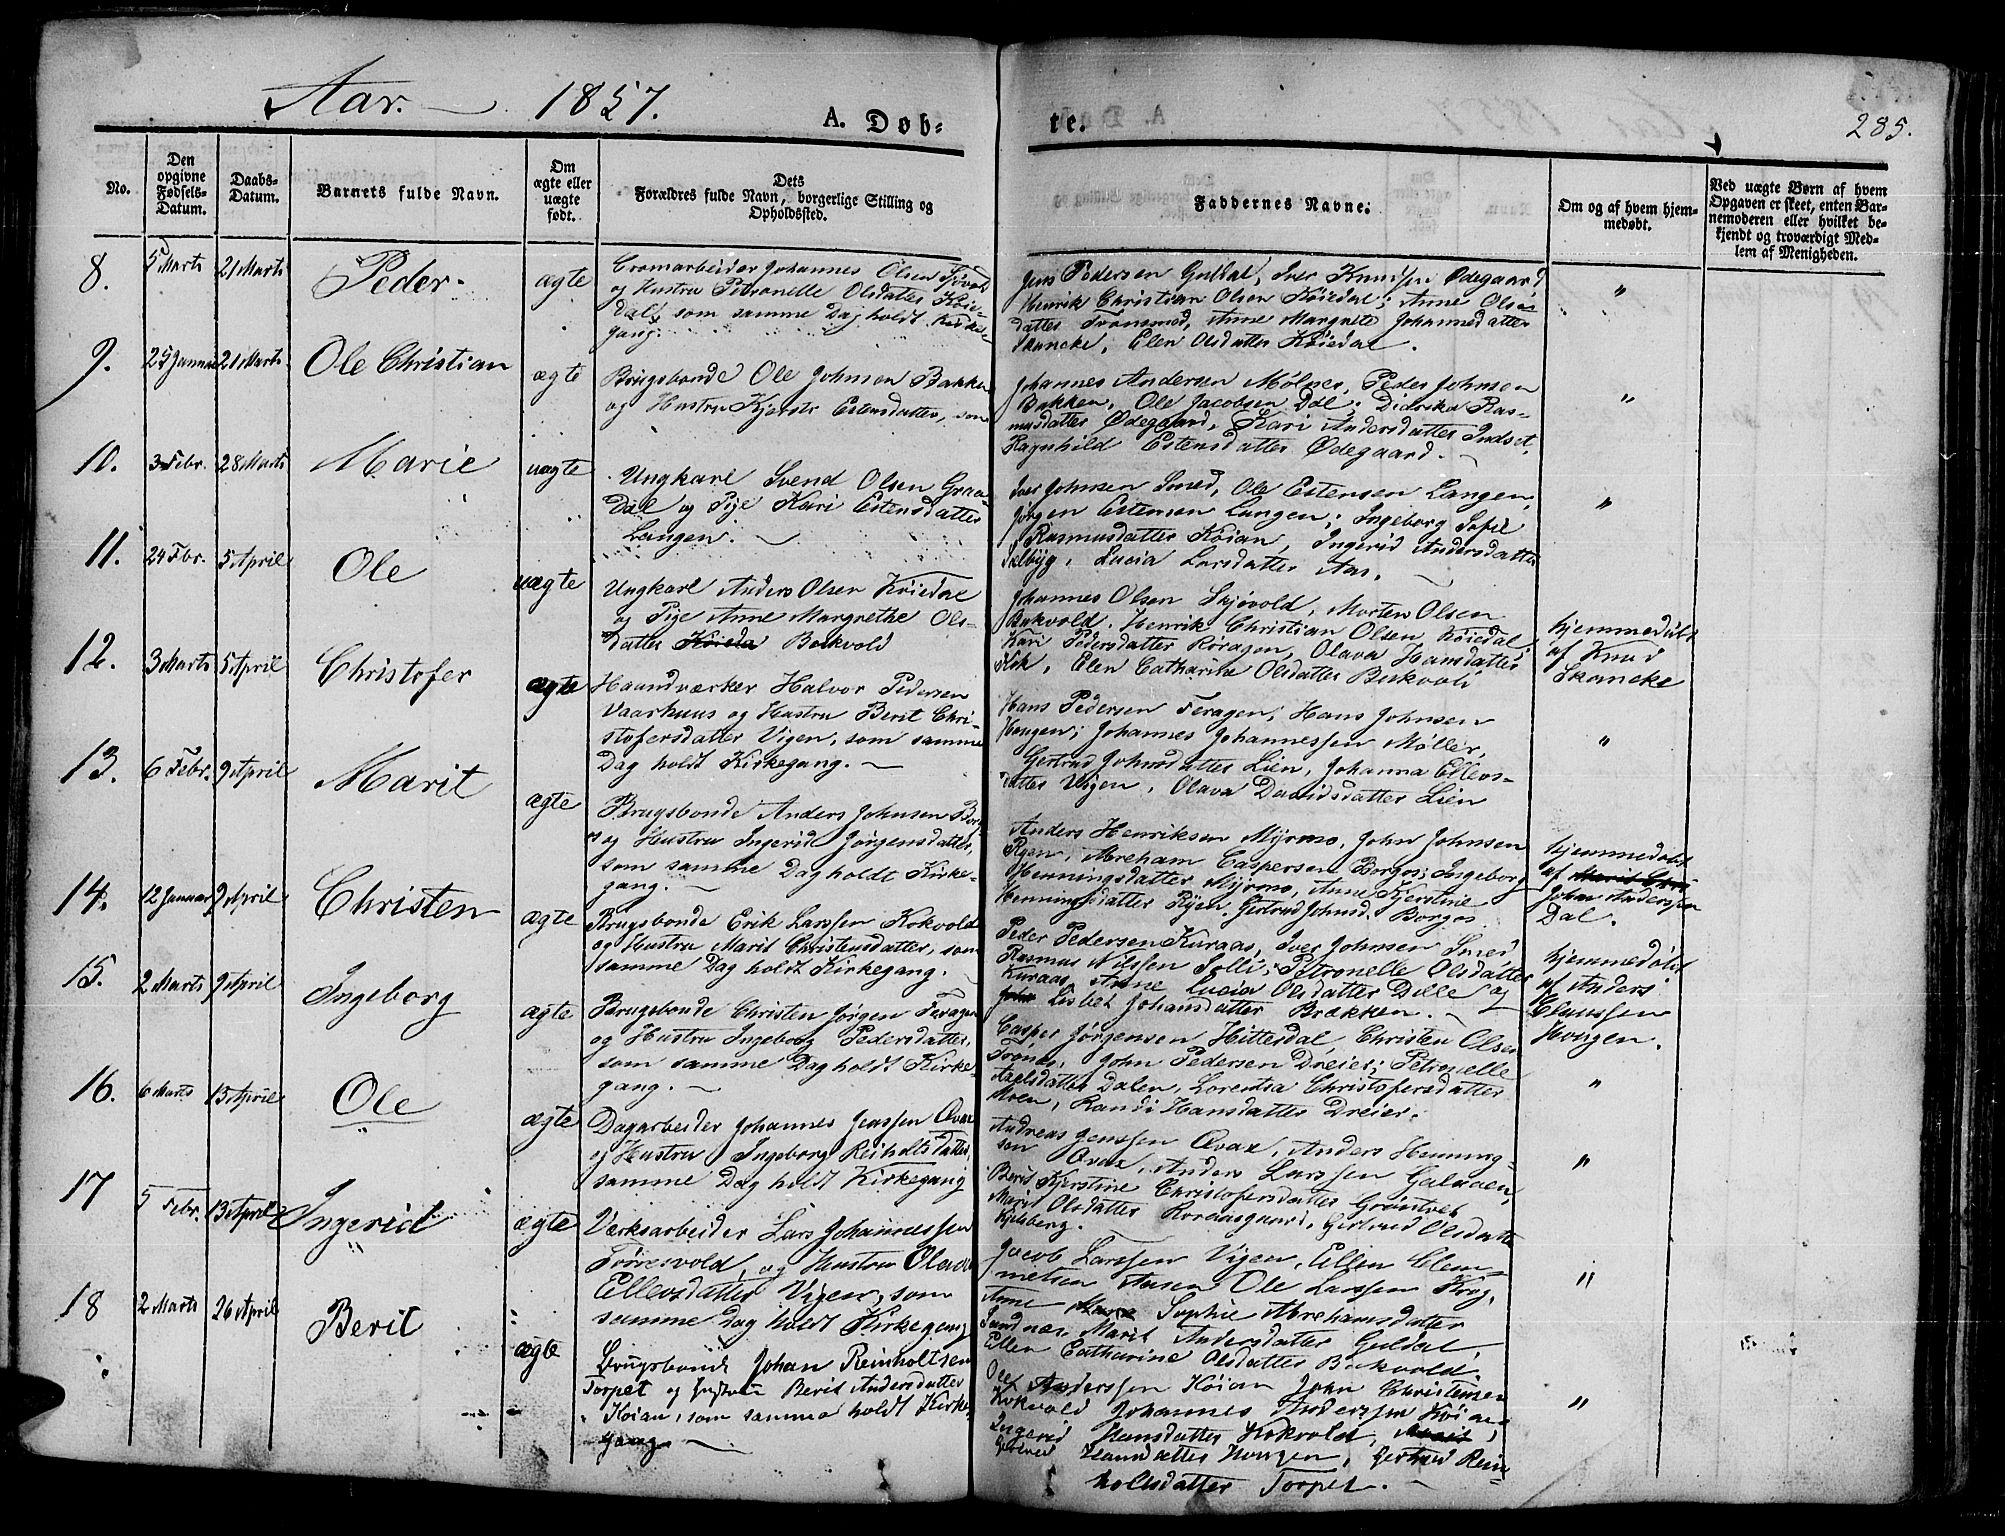 Aar. 1857. A. Døb-
te. 285.
No.
Den opgivne Fødsels-Datum.
Daabs-Datum.
Barnets fulde Navn.
Om ægte eller uægte født.
Dets Forældres fulde Navn, borgerlige Stilling og Opholdssted.
Faddernes Navne.
Om og af hvem hjemmedøbt.
Ved uægte Børn af hvem
Opgaven er skeet, enten Bar-
nemoderen eller hvilket be-
kjendt og troværdigt Med-
lem af Menigheden.
8. 5 Marts 21 Marts Peder. ægte
Johannes Olsen
og Hustru Petronelle Olsdatter Køie-
dal, som samme Dag holdt Kirke-
gang.
Jens Pedersen Guldal, Iver Knudsen Ødegaard
Henrik Christian Olsen Køiedal; Anne Ols-
datter Trønsmed, Anne Margrete Johannesdatter
Skancke, Elen Olsdatter Køiedal. "
9. 25 Januar 21 Marts Ole Christian ægte
Brugsbonde Ole Johnsen Bakken
og Hustru Kjersti Estensdatter, som
Johannes Andersen Mølnes, Peder Johnsen
Bakken, Ole Jacobsen Dal; Didrika Ras-
musdatter Ødegaard, Kari Andersdatter Indset,
Ragnhild Estensdatter Ødegaard. "
10. 3 Febr. 28 Marts Marie uægte
Ungkarl Svend Olsen Graa-
dal og Pige Kari Estensdatter
Langen.
Iver Johnsen Smed, Ole Estensen Langen,
Jørgen Estensen Langen; Ingeborg Sofie
Rasmusdatter Køian, Ingerid Andersdatter
Galbyg, Lucia Larsdatter Aas. "
11. 24 Fbr. 5 April Ole uægte
Ungkarl Anders Olsen Køiedal
og Pige Anne Margrethe Ols-
datter Bakvold
Johannes Olsen Skjøvold, Morten Olsen
Bakvold, Henrik Christian Olsen Køiedal,
Kari Pedersdatter Røragen, Olava Hansdatter
Kok, Elen Catharine Olsdatter Bakvold
hjemmedøbt
af Knud
Skancke
12. 3 Marts 5 April Christofer ægte
Haandværker Halvor Pedersen
Vaarhuus og Hustru Berit Chri-
stofersdatter Vigen, som samme
Dag holdt Kirkegang.
Hans Pedersen Feragen, Hans Johnsen
Hougen; Johannes Johannessen Møller,
Gertrud Johnsdatter Lien, Johanna Ellevs-
datter Vigen, Olava Davidsdatter Lien "
13. 6 Febr. 9 April Marit ægte
Brugsbonde Anders Johnsen
og Hustru Ingerid Jørgensdatter,
som samme Dag holdt Kirke-
gang.
Anders Henriksen Myrmo, John Johnsen
Ryen, Abraham Caspersen Borgos; Ingeborg
Henningsdatter Myrmo, Anne Kjerstine
Henningsdatter Ryen, Gertrud Johnsd. Borgos
hjemmedøbt
af
Johan Anderssen
Dal.
14. 12 Januar 9 April Christen ægte
Brugsbonde Erik Larssen Kokvold
og Hustru Marit Christensdatter, som
samme Dag holdt Kirkegang.
Peder Pedersen Kuraas, Iver Johnsen Smed
Rasmus Nilssen Solli; Petronelle Olsdatter
Kuraas, Anne Lucia Olsdatter Dille og
Lisbet Johansdatter Brækken.
hjemmedøbt
af Anders
Claussen
Hougen.
15. 2 Marts 9 April Ingeborg ægte
Brugsbonde Christen Jørgen Feragen
og Hustru Ingeborg Pedersdatter,
som samme Dag holdt Kirke-
gang.
Casper Jørgensen Hittersdal, Christen Olsen
Trønes, John Pedersen Dreier; Petronelle
Axelsdatter Dalen, Lorentsa Christofersdatter
Moen, Randi Hansdatter Dreier. "
16. 6 Marts 13 April Ole ægte
Dagarbeider Johannes Jenssen Qvax
og Hustru Ingeborg Reiholtsdatter,
samme Dag holdt Kirkegang
Andreas Jenssen Qvax, Anders Henning-
sen Qvax, Anders Larssen Galaaen,
Berit Kjerstine Christofersdatter Grøntvet
Marit Olsdatter Koraasgaard, Gertrud Olsdatter
Kjelsberg. "
17 5 Febr. 13 April Ingerid ægte
Værksarbeider Lars Johannessen
Tørresvold, og Hustru Olava
Ellevsdatter Vigen, som
samme Dag holdt Kirkegang
Jacob Larssen Vigen, Ellen Clem-
metsen Aasen Ole Larssen Krog,
Anne Sophie Abrahamsdatter
Sundnæs, Marit Andersdatter Guldal,
Ellen Catharine Olsdatter Bakvold. "
18 2 Marts 26 April Berit ægte
Brugsbonde Johan Reinholtsen
Torpet og Hustru Berit Andersdatter
Køian, som samme holdt Kirke-
gang.
Ole Anderssen Køian John Christensen
Kokvold Johannes Anderssen Køian,
Ingerid Hansdatter Kokvold,
Hansdatter Hougen, Gertrud Rein-
holtsdatter Torpet. "